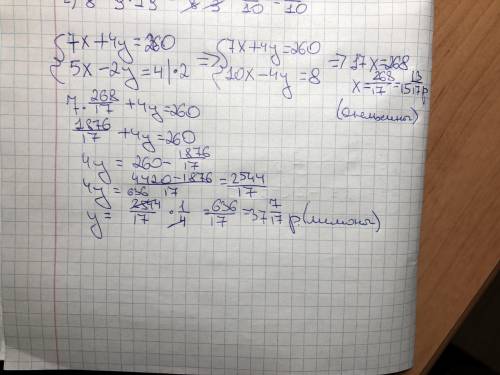 7x+4y=260 => 7x+4y=260 => 17x=268
5x-2y=4|·2 10x-4y=8 x=268/17=15 13/17 р
(апельсины)
7·268/17+4y=260
1876/17+4y=260
4y=260-1876/17
4y=4420-1876/17=2544/17
636
y=2544/17·1/4=636/17=37 7/17 р.(лимоны)